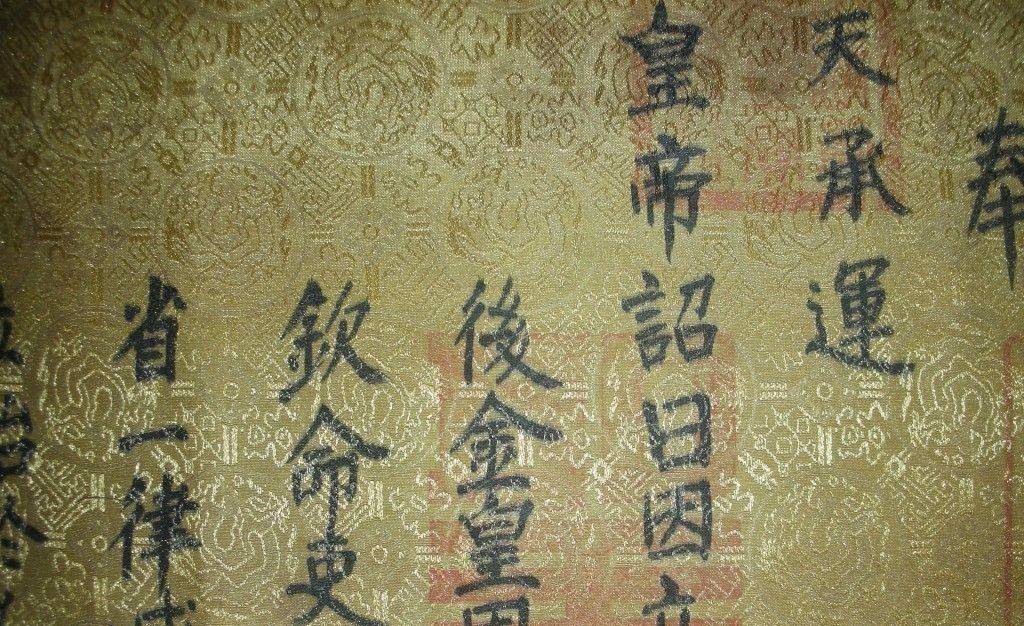 奉
天承運
皇帝詔曰因
後金皇
欽命史
省一律